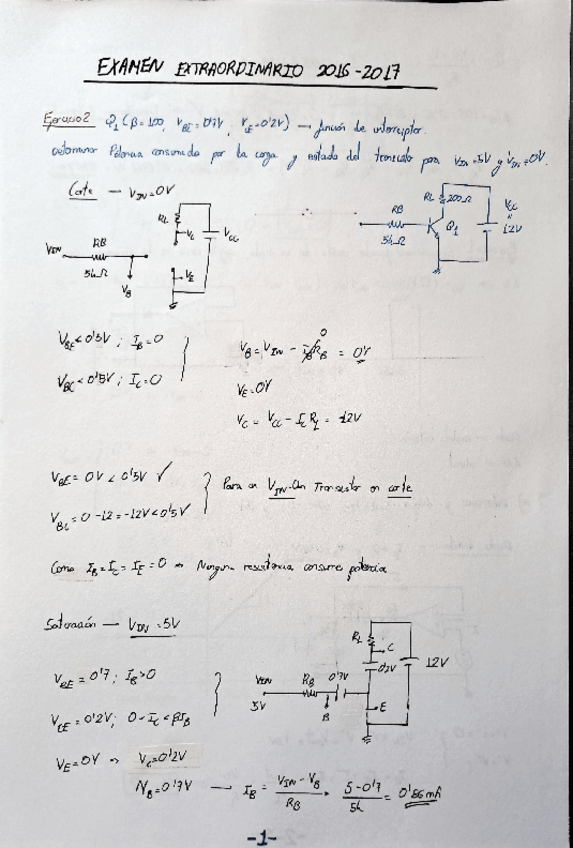 EXAMEN EXTRAORDINARIO 2016-2017
Ejercicio 2 Q1 (β=100, VBE=0'7V, VCE=0'2V) → función de interruptor.
Determinar Potencia consumida por la carga y estado del transistor para VIN=5V y VIN=0V.
Corte — VIN=0V
RL
VC
VCC
VIN
RB
5kΩ
VB
VE
RL 200Ω
RB
5kΩ
Q1
VCC
"
12V
VBE<0'5V ; IB=0
VBC<0'5V ; IC=0
VB=VIN - IBRB = 0V
0
VE=0V
VC = VCC - IC RL = 12V
VBE = 0V < 0'5V ✓
VBC = 0-12=-12V<0'5V
Para un VIN=0V Transistor en corte
Como IB=IC=IE=0 → Ninguna resistencia consume potencia
Saturación — VIN=5V
VBE = 0'7 ; IB>0
VCE=0'2V; 0<IC<βIB
VE=0V → VC=0'2V
VB=0'7V → IB = (VIN - VB)/RB = (5-0'7)/5k = 0'86 mA
RL
C
0'2V
12V
VIN
5V
RB
0'7V
B
E
-1-